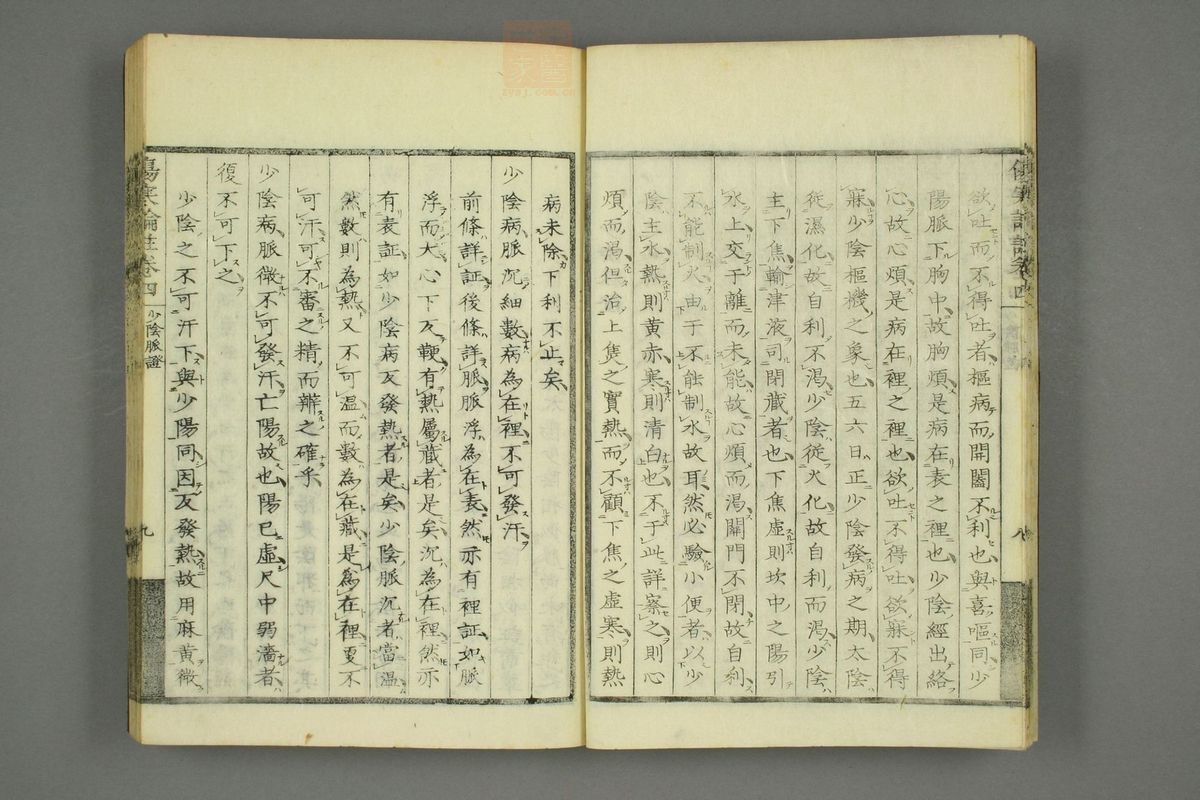 欲吐而不得吐者樞病而開闔不利也與喜嘔同少
陽脈下胸中故胸煩是病在表之裡也少陰經出絡
心故心煩是病在裡之裡也欲吐不得吐欲寐不得
寐少陰樞機之象也五六日正少陰發病之期太陰
從濕化故自利不渴少陰從火化故自利而渴少陰
主下焦輸津液司閉藏者也下焦虛則坎中之陽引
水上交于離而未能故心煩而渴關門不閉故自利
不能制火由于不能制水故耳然必驗小便者以少
陰主水熱則黃赤寒則清白也不于此詳察之則心
煩而渴但治上焦之實熱而不顧下焦之虛寒則熱
傷寒論註卷四
八
病未除下利不止矣
少陰病脈沉細數病為在裡不可發汗
前條詳証後條詳脈脈浮為在表然亦有裡証如脈
浮而大心下反鞕有熱屬藏者是矣沉為在裡然亦
有表証如少陰病反發熱者是矣少陰脈沉者當溫
然數則為熱又不可溫而數為在藏是為在裡更不
可汗可不審之精而辨之確乎
少陰病脈微不可發汗亡陽故也陽已虛尺中弱濇者
復不可下之
少陰之不可汗下與少陽同因反發熱故用麻黃微
傷寒論註卷四
少陰脈證
九